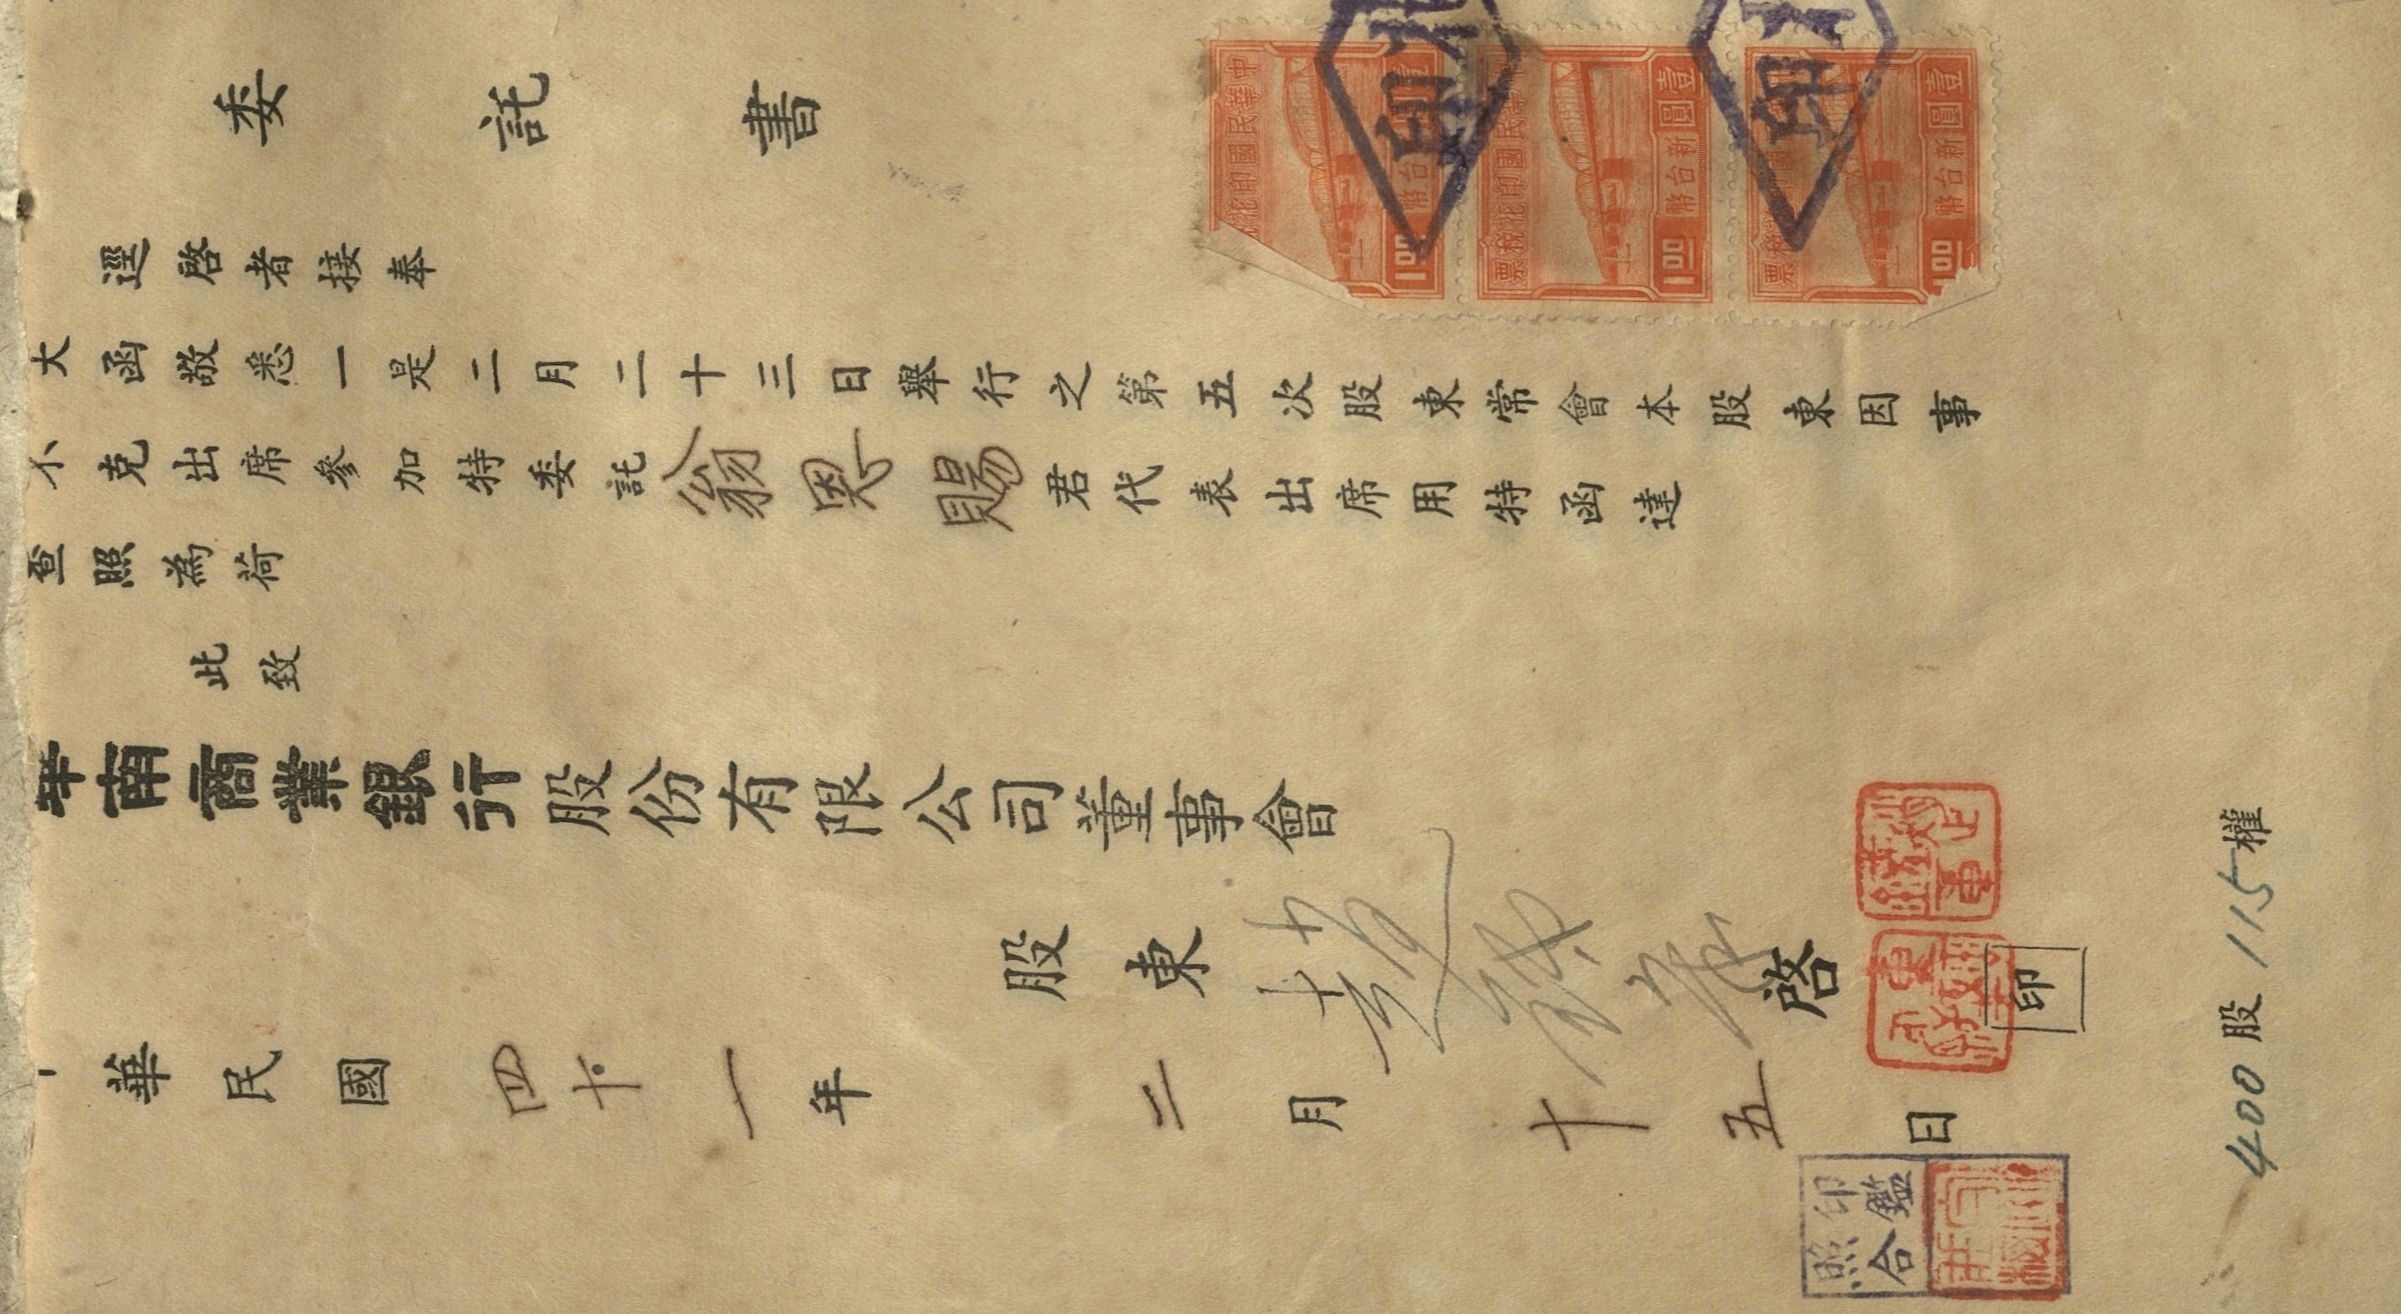 委託書
逕啓者接奉
大函敬悉一是二月二十三日舉行之第五次股東常會本股東因事
不克出席參加特委託翁恩賜君代表出席用特函達
查照為荷
此致
華南商業銀行股份有限公司董事會
股東 啓
印
華民國四十一年二月十五日
印鑑
照合
400股115權
中華民國印花
壹圓新台幣
1.00
中華民國印花稅票
壹圓新台幣
1.00
稅票
壹圓新台幣
1.00
印
印